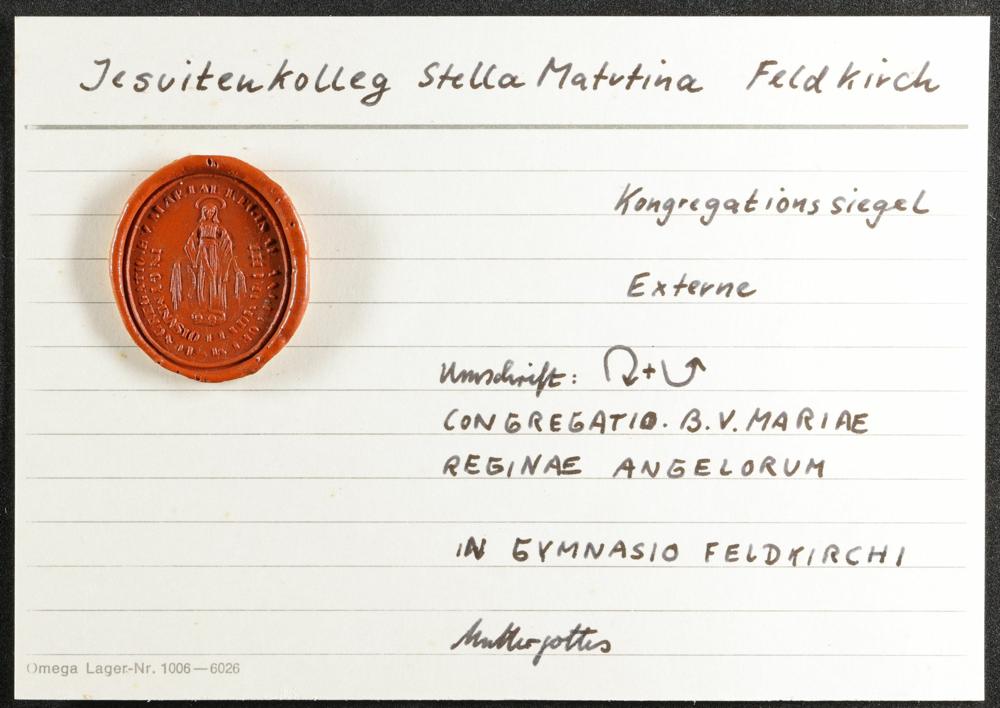 Jesuitenkolleg Stella Matutina Feldkirch
Kongregationssiegel
Externe
Umschrift: +
CONGREGATIO. B.V. MARIAE
REGINAE ANGELORUM
IN GYMNASIO FELDKIRCHI
Muttergottes
Omega Lager-Nr. 1006—6026